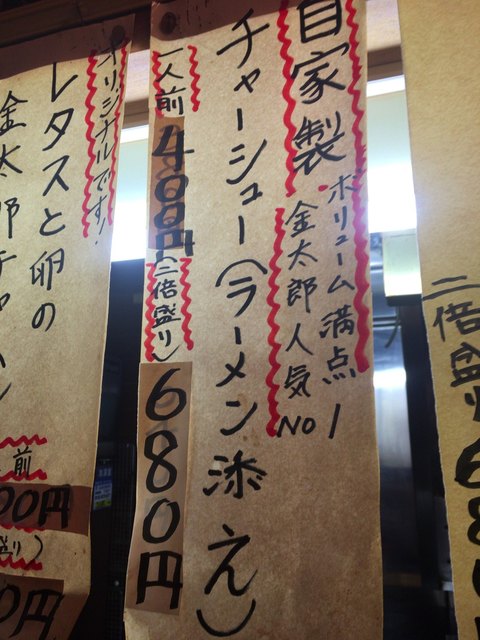 自家製
ボリューム満点
金太郎人気No1
チャーシュー(ラーメン添え)
一人前
400円
(二倍盛り)
680円
オリジナルです!
レタスと卵の
金太郎チャーハン
前
00円
盛り)
0円
二倍盛り
680